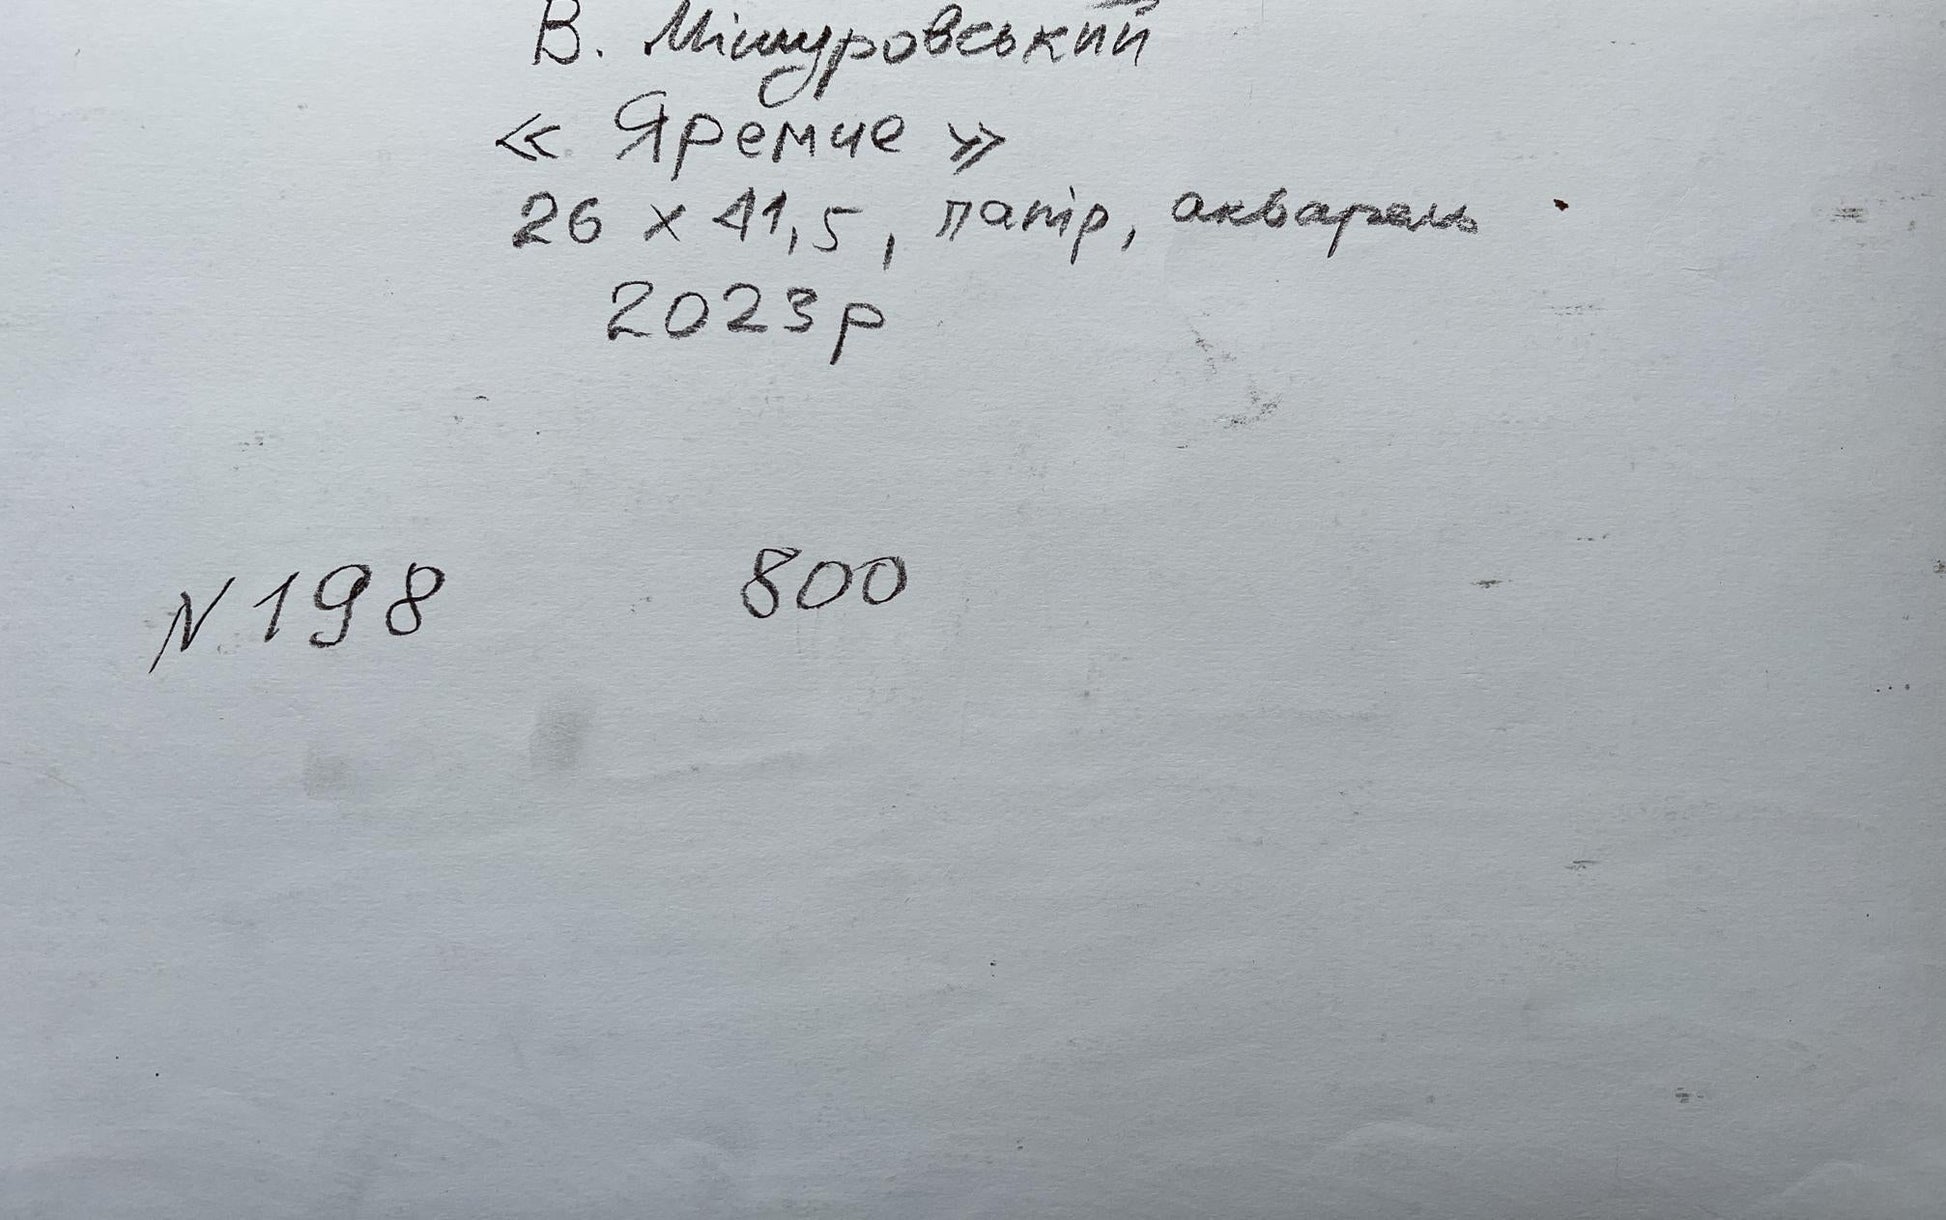 В. Мішуровський
« Яремче »
26 х 41,5, папір, акварель
2023р
N 198 800